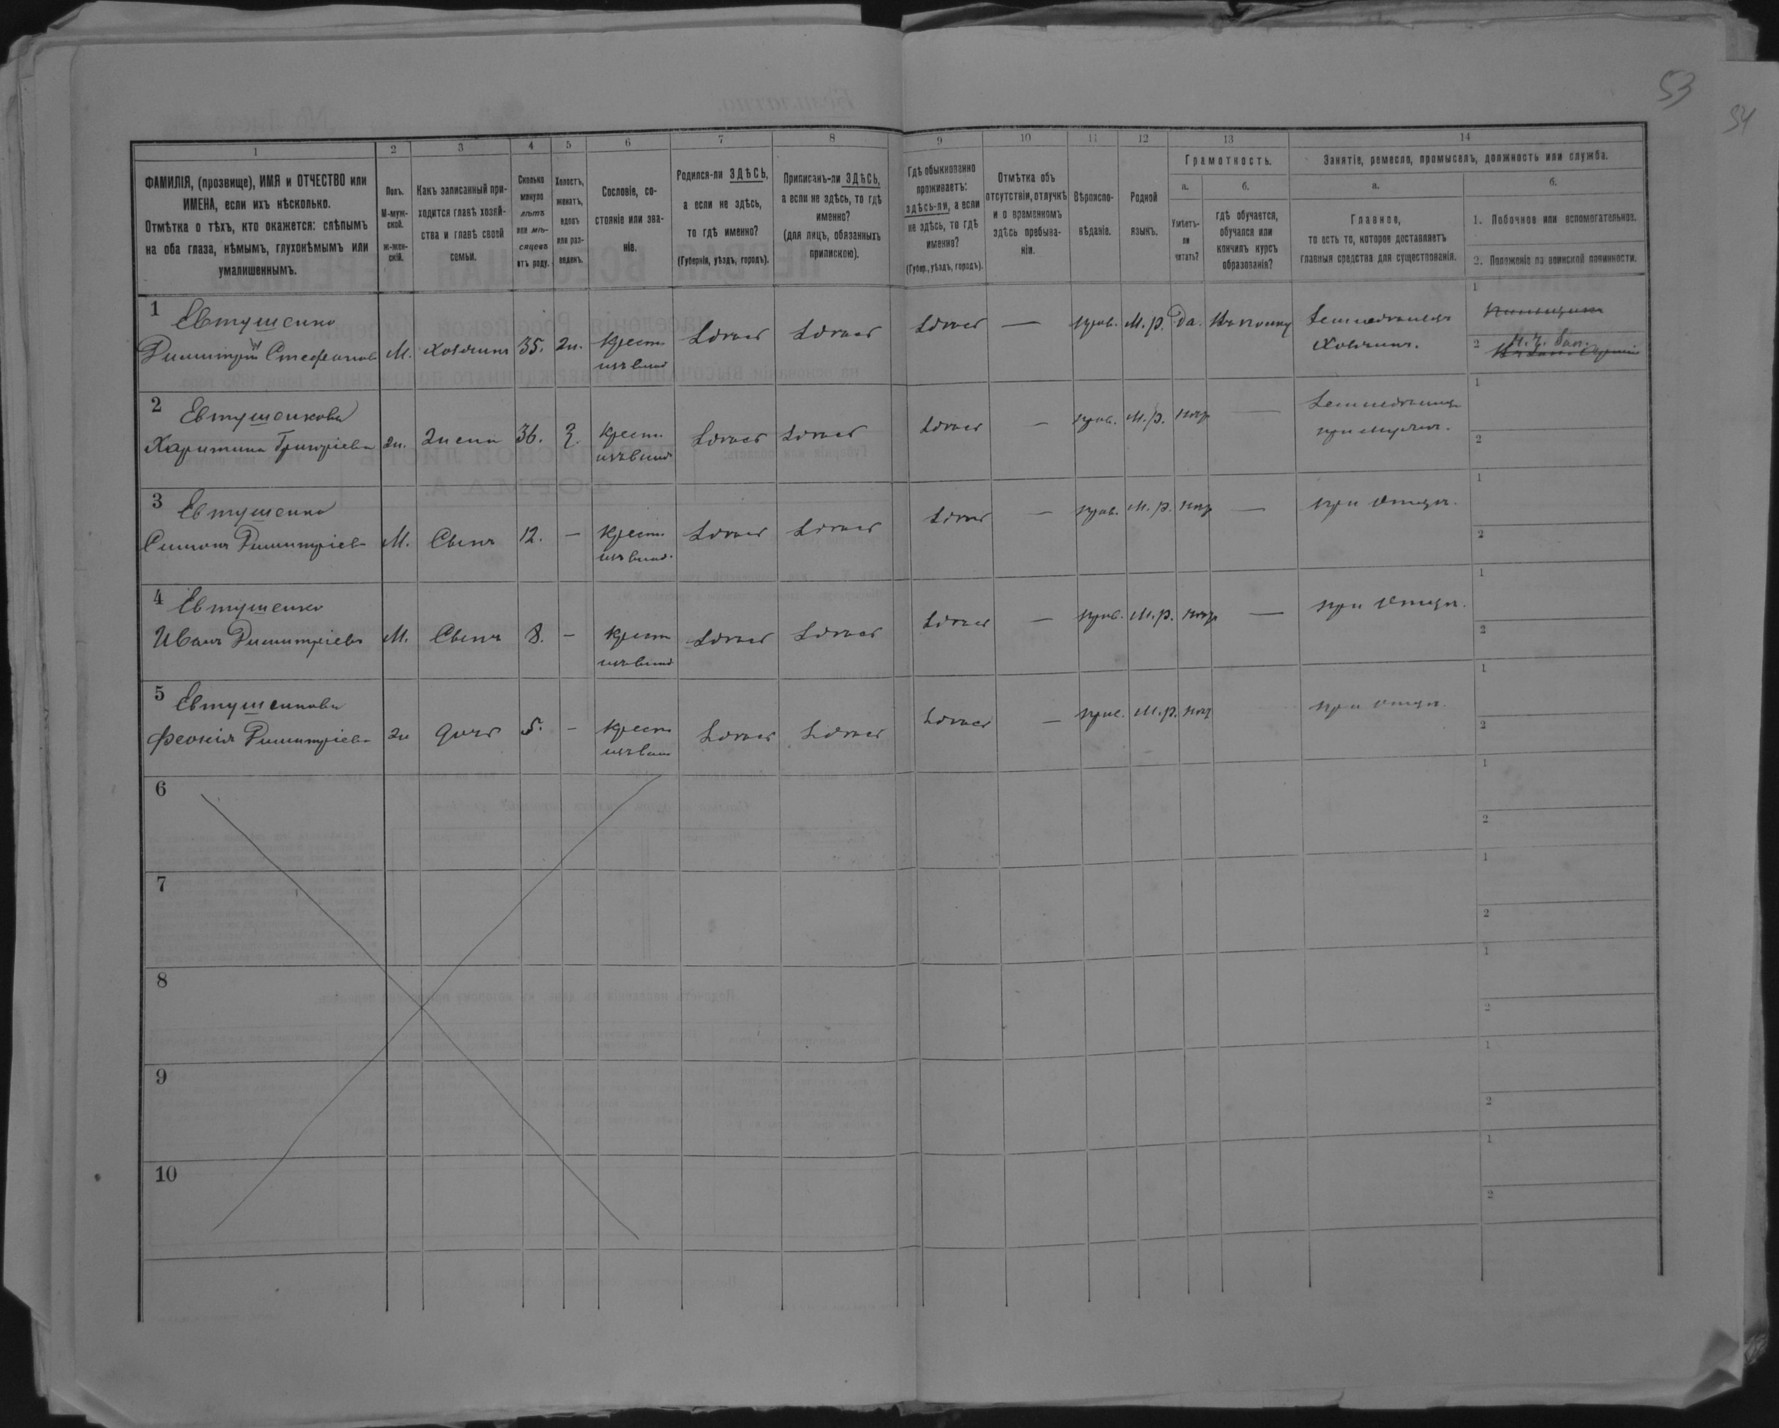 53
54
1
2
3
4
5
6
7
8
9
10
11
12
13
14
ФАМИЛІЯ, (прозвище), ИМЯ и ОТЧЕСТВО или
ИМЕНА, если ихъ нѣсколько.
Отмѣтка о тѣхъ, кто окажется: слѣпымъ
на оба глаза, нѣмымъ, глухонѣмымъ или
умалишеннымъ.
Полъ.
М-муж-
ской.
ж-жен-
скій.
Какъ записанный при-
ходится главѣ хозяй-
ства и главѣ своей
семьи.
Сколько
минуло
лѣтъ
или мѣ-
сяцевъ
отъ роду.
Холостъ,
женатъ,
вдовъ
или раз-
веденъ.
Сословіе, со-
стояніе или зва-
ніе.
Родился-ли ЗДѢСЬ,
а если не здѣсь,
то гдѣ именно?
(Губернія, уѣздъ, городъ).
Приписанъ-ли ЗДѢСЬ,
а если не здѣсь, то гдѣ
именно?
(для лицъ, обязанныхъ
припискою).
Гдѣ обыкновенно
проживаетъ:
здѣсь-ли, а если
не здѣсь, то гдѣ
именно?
(Губер., уѣздъ, городъ).
Отмѣтка объ
отсутствіи, отлучкѣ
и о временномъ
здѣсь пребыва-
ніи.
Вѣроиспо-
вѣданіе.
Родной
языкъ.
Грамотность.
а.
Умѣетъ-
ли
читать?
б.
гдѣ обучается,
обучался или
кончилъ курсъ
образованія?
Занятіе, ремесло, промыселъ, должность или служба.
а.
Главное,
то есть то, которое доставляетъ
главныя средства для существованія.
б.
1. Побочное или вспомогательное.
2. Положеніе по воинской повинности.
1
Евтушенко
Димитрій Стефановъ М. хозяинъ 35. ж. крест. Здѣсь Здѣсь Здѣсь — прав. М. р. да. Земледѣлецъ
хозяинъ.
1
2
2
Евтушенкова
Харитина Григоріева ж. жена 36. З. крест. Здѣсь Здѣсь Здѣсь — прав. М. р. нѣтъ — Земледѣлица
при мужѣ.
1
2
3
Евтушенко
Симонъ Димитріевъ М. Сынъ 12. — крест. Здѣсь Здѣсь Здѣсь — прав. М. р. нѣтъ — при отцѣ.
1
2
4
Евтушенко
Иванъ Димитріевъ М. Сынъ 8. — крест. Здѣсь Здѣсь Здѣсь — прав. М. р. нѣтъ — при отцѣ.
1
2
5
Евтушенкова
Феокія Димитріева ж дочь 5. — крест. Здѣсь Здѣсь Здѣсь — прав. М. р. нѣтъ при отцѣ.
1
2
6
1
2
7
1
2
8
1
2
9
1
2
10
1
2